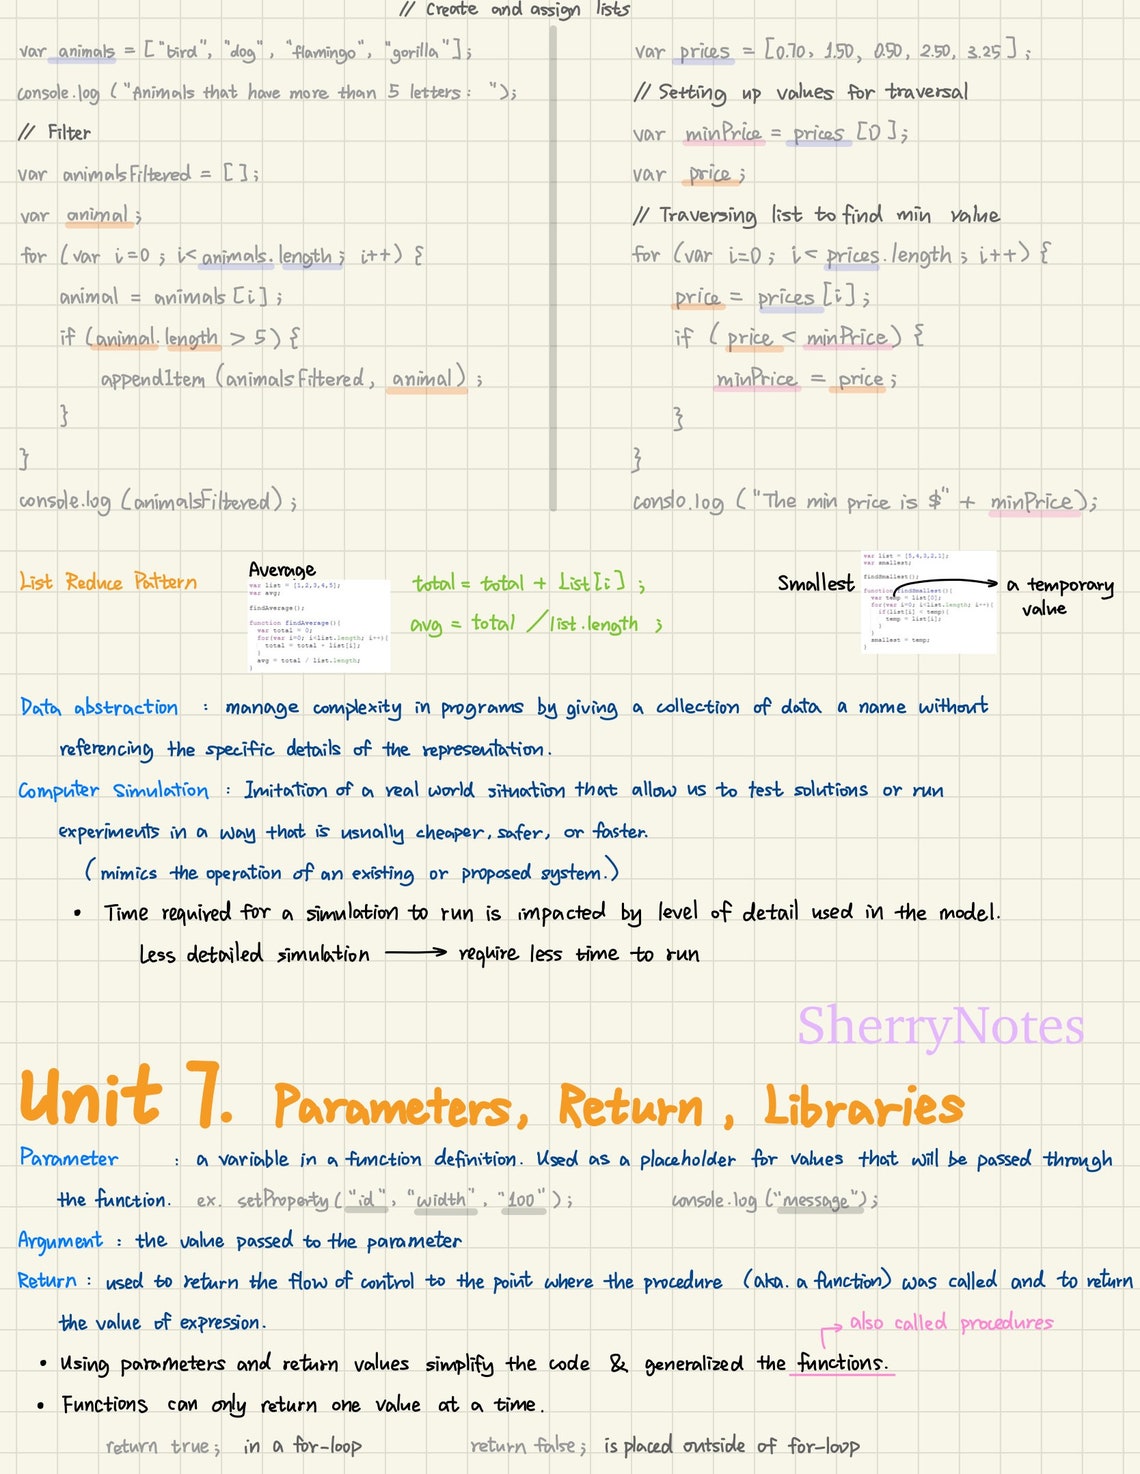 // Create and assign lists
var animals = ["bird", "dog", "flamingo", "gorilla"];
console.log ("Animals that have more than 5 letters: ");
// Filter
var animalsFiltered = [];
var animal;
for (var i=0; i<animals.length; i++) {
animal = animals[i];
if (animal.length > 5) {
appendItem (animalsFiltered, animal);
}
}
console.log (animalsFiltered);
var prices = [0.70, 1.50, 0.50, 2.50, 3.25];
// Setting up values for traversal
var minPrice = prices [0];
var price;
// Traversing list to find min value
for (var i=0; i< prices.length; i++) {
price = prices[i];
if (price < minPrice) {
minPrice = price;
}
}
conslo.log ("The min price is $" + minPrice);
List Reduce Pattern
Average
var list = [1,2,3,4,5];
var avg;
findAverage();
function findAverage(){
var total = 0;
for(var i=0; i<list.length; i++){
total = total + list[i];
}
avg = total / list.length;
}
total = total + List[i];
avg = total / list.length ;
Smallest
var list = [5,4,3,2,1];
var smallest;
findSmallest();
function findSmallest(){
var temp = list[0];
for(var i=0; i<list.length; i++){
if(list[i] < temp){
temp = list[i];
}
}
smallest = temp;
}
a temporary
value
Data abstraction : manage complexity in programs by giving a collection of data a name without
referencing the specific details of the representation.
Computer Simulation : Imitation of a real world situation that allow us to test solutions or run
experiments in a way that is usually cheaper, safer, or faster.
(mimics the operation of an existing or proposed system.)
• Time required for a simulation to run is impacted by level of detail used in the model.
Less detailed simulation → require less time to run
SherryNotes
Unit 7. Parameters, Return, Libraries
Parameter : a variable in a function definition. Used as a placeholder for values that will be passed through
the function. ex. setProperty("id", "width", "100"); console.log ("message");
Argument : the value passed to the parameter
Return : used to return the flow of control to the point where the procedure (aka. a function) was called and to return
the value of expression.
also called procedures
• Using parameters and return values simplify the code & generalized the functions.
• Functions can only return one value at a time.
return true; in a for-loop return false; is placed outside of for-loop